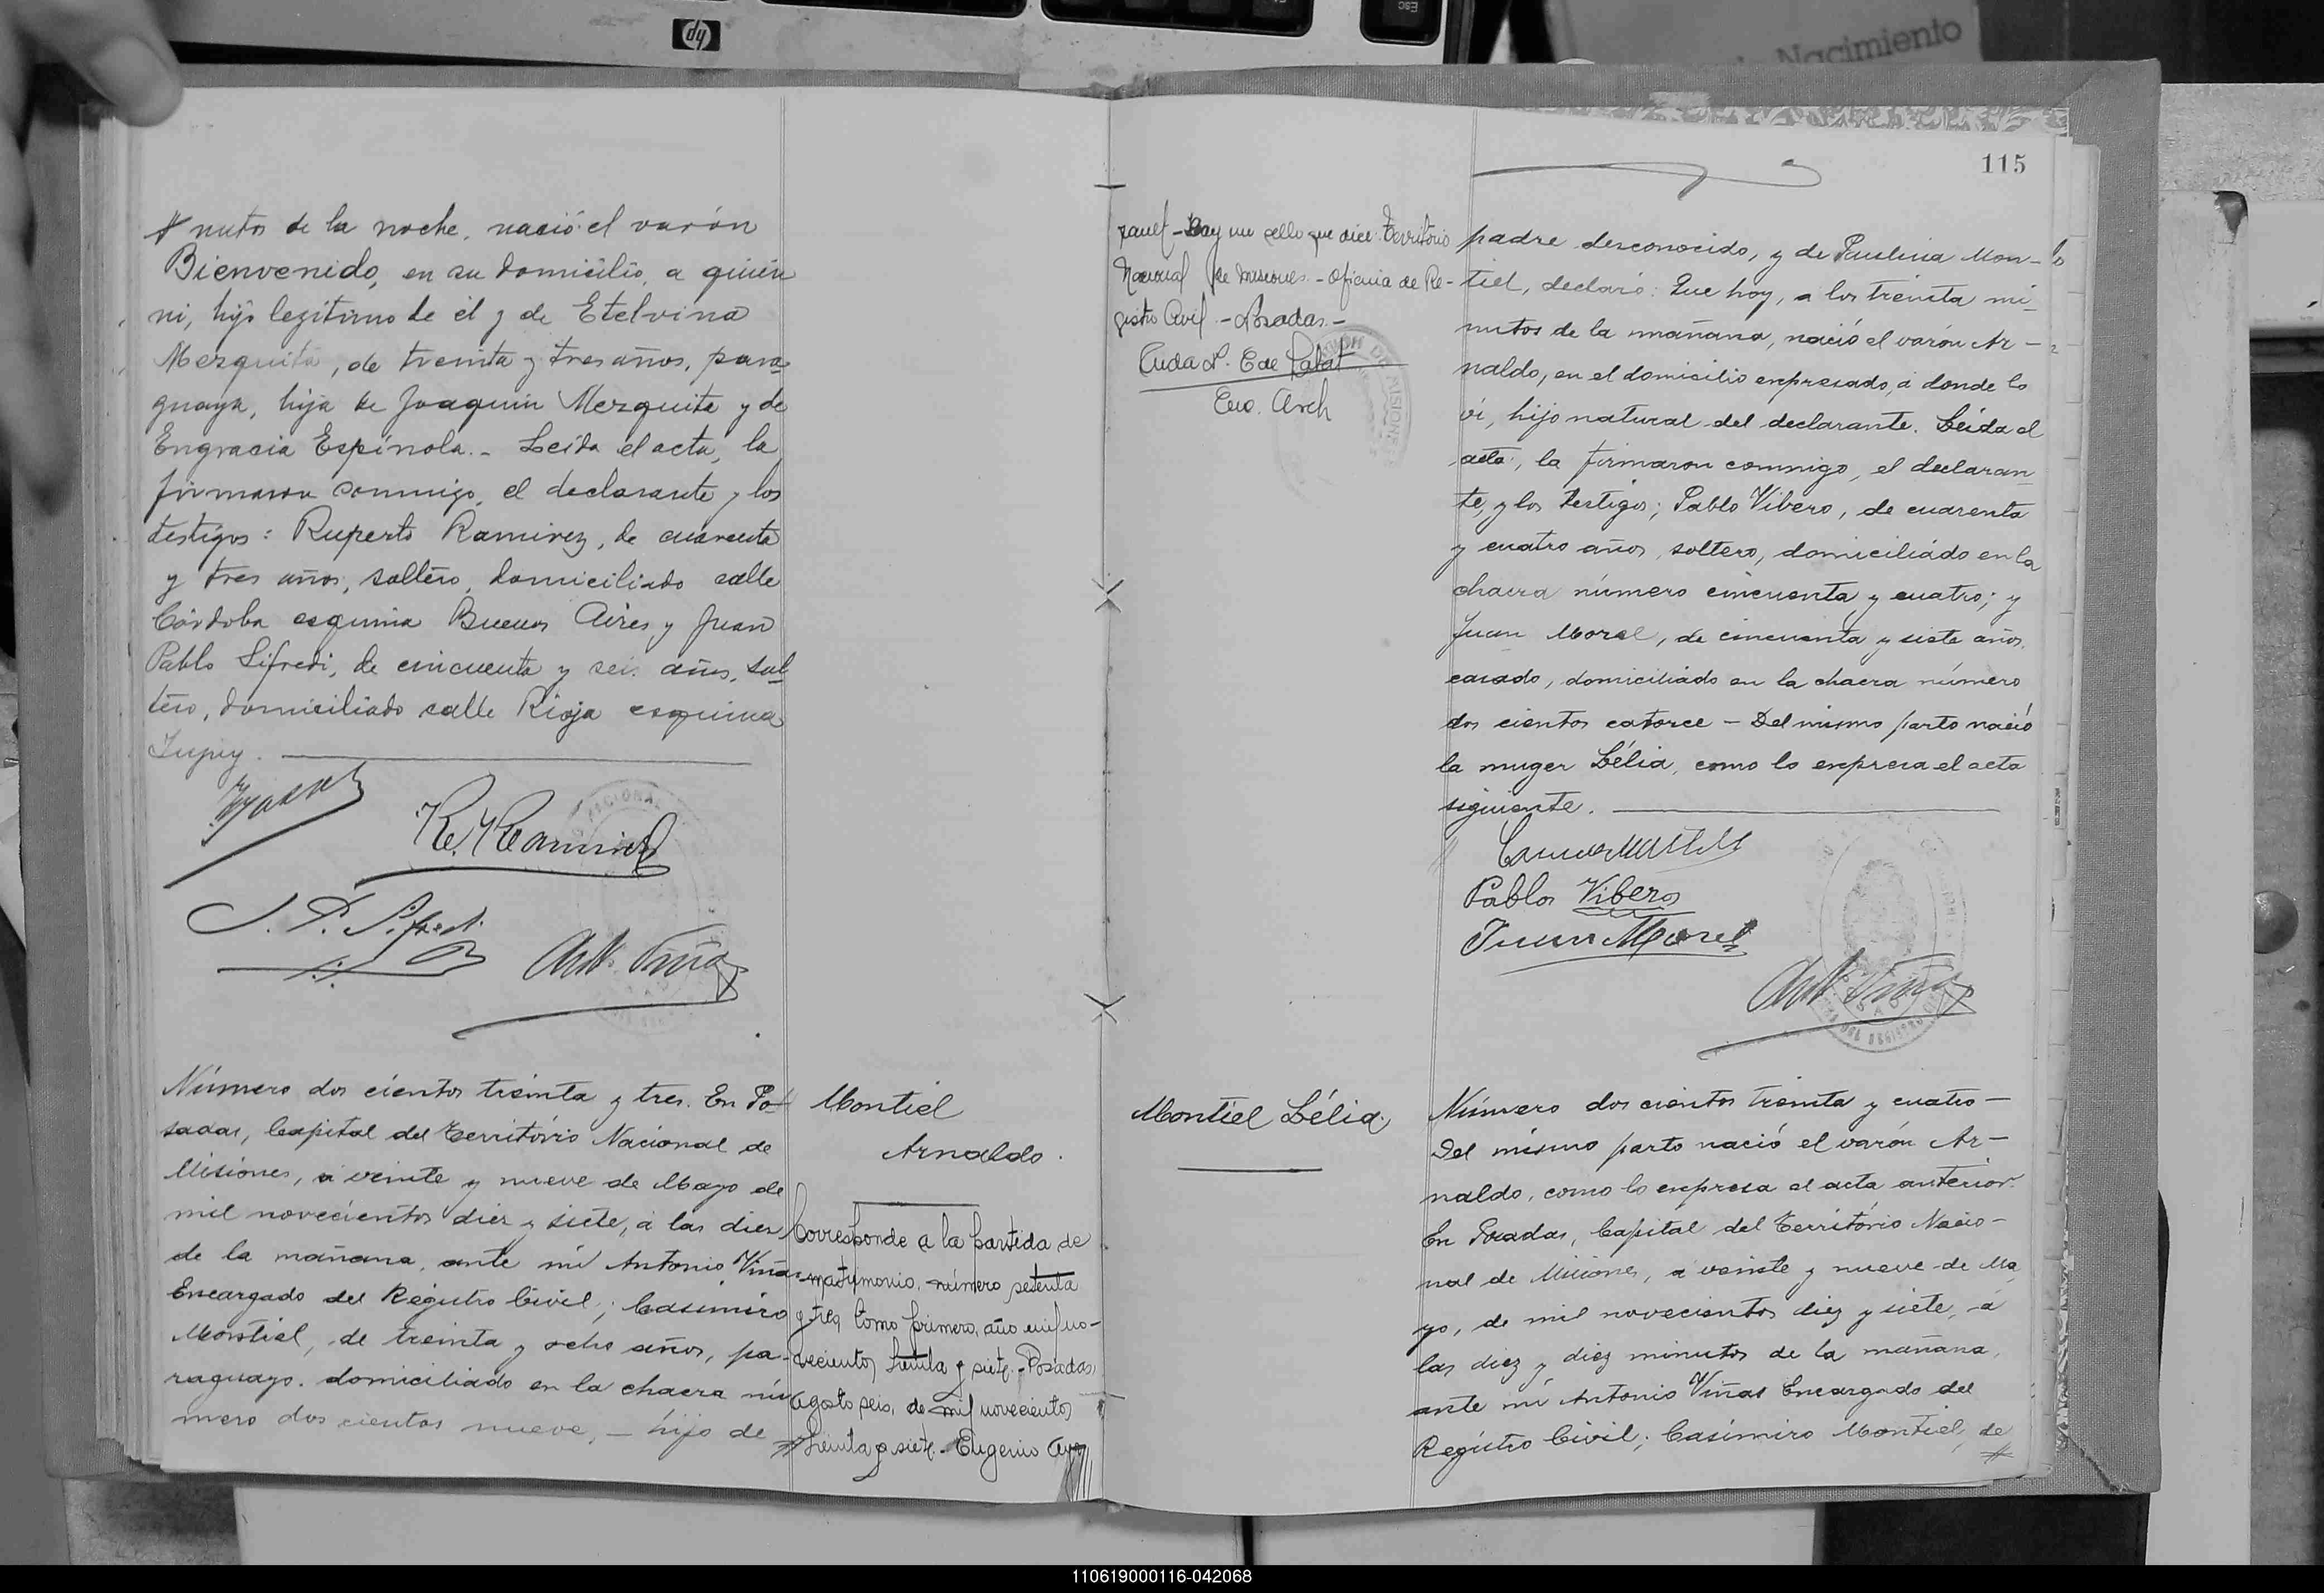 hp
Esc
Nacimiento
nutos de la noche, nació el varón
Bienvenido, en su domicilio, a quien
ni, hijo legítimo de él y de Etelvina
Mezquita, de treinta y tres años, para
guaya, hija de Joaquin Mezquita y de
Engracia Espínola.- Leída el acta, la
firmaron conmigo, el declarante y los
testigos: Ruperto Ramirez, de cuarenta
y tres años, soltero, domiciliado calle
Córdoba esquina Buenos Aires y Juan
Pablo Sifredi, de cincuenta y seis años, sol
tero, domiciliado calle Rioja esquina
R. Ramirez
J. P. Sifredi
Ant. Viñas
Número dos cientos treinta y tres. En Po-
sadas, Capital del Territorio Nacional de
Misiones, a veinte y nueve de Mayo de
mil novecientos diez y siete, á las diez
de la mañana, ante mí Antonio Viñas
Encargado del Registro Civil; Casimiro
Montiel, de treinta y ocho años, pa-
raguayo, domiciliado en la chacra nú
mero dos cientos nueve, — hijo de
Montiel
Arnaldo.
Corresponde a la partida de
matrimonio, número setenta
y tres, tomo primero, año mil no-
vecientos treinta y siete.- Posadas,
Agosto seis, de mil novecientos
treinta y siete.- Eugenio
Hay un sello que dice: Territorio
Nacional de Misiones.- Oficina de Re-
gistro Civil.- Posadas.-
Enc. Arch
Montiel Lélia.
115
padre desconocido, y de Paulina Mon-
tiel, declaró: Que hoy, a los treinta mi-
nutos de la mañana, nació el varón Ar-
naldo, en el domicilio expresado, á donde lo
ví, hijo natural del declarante. Leída el
acta, la firmaron conmigo, el declaran
te, y los testigos; Pablo Vibero, de cuarenta
y cuatro años, soltero, domiciliado en la
chacra número cincuenta y cuatro; y
Juan Morel, de cincuenta y siete años,
casado, domiciliado en la chacra número
dos cientos catorce — Del mismo parto nació
la muger Lélia, como lo expresa el acta
siguiente.
Pablo Vibero
Juan Morel
Ant. Viñas
Número dos cientos treinta y cuatro —
Del mismo parto nació el varón Ar-
naldo, como lo expresa el acta anterior.
En Posadas, Capital del Territorio Nacio-
nal de Misiones, a veinte y nueve de Ma
yo, de mil novecientos diez y siete, á
las diez y diez minutos de la mañana,
ante mí Antonio Viñas Encargado del
Registro Civil; Casimiro Montiel, de
110619000116-042068